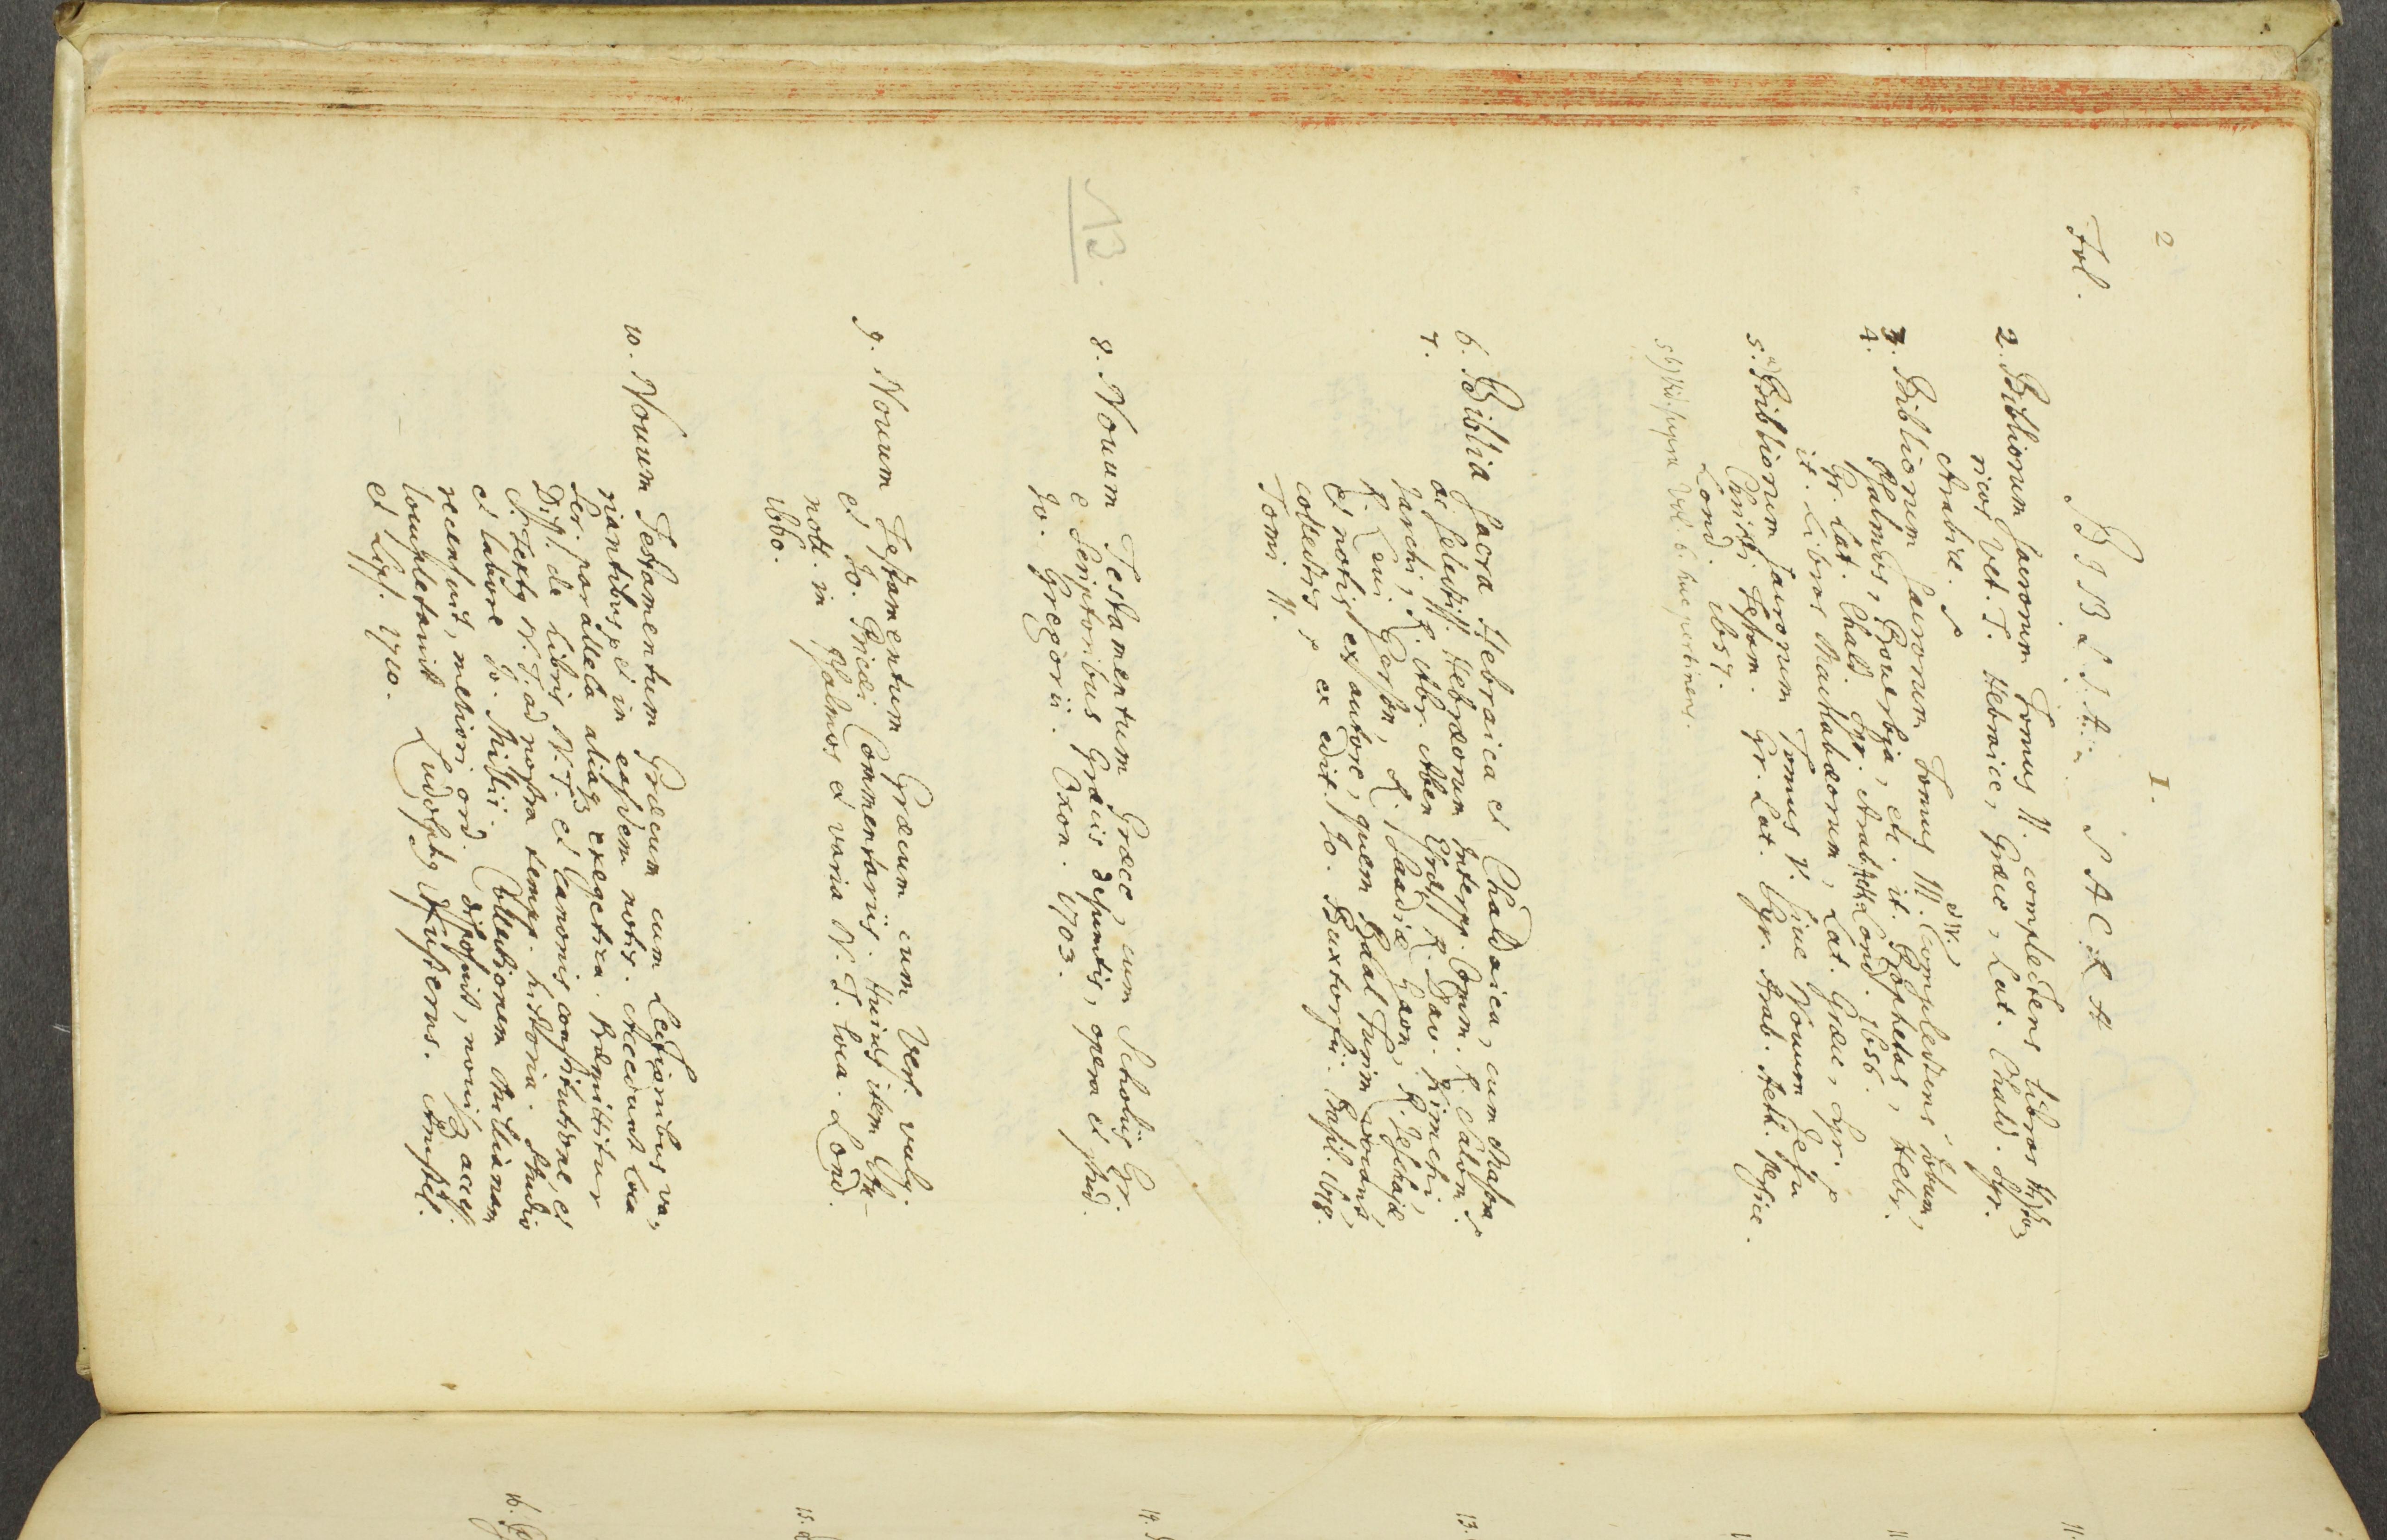 2
I.
Fol.
BIBLIA SACRA
2. Bibliorum sacrorum Tomus II. complectens libros Histo-
ricos Vet. T. Hebraice, Graece, Lat. Chald. Syr.
Arabice.
3. Bibliorum sacrorum Tomus III. et IV. Complectens Jobum,
4. Psalmos, Prouerbia, etc. it. Prophetas, Hebr.
Gr. Lat. Chald. Syr. Arab. Lond. 1656.
it. Libros Maccabaeorum, Lat. Graec, Syr.
5. a) Bibliorum sacrorum Tomus V. siue Nouum Jesu
Christi Testam. Gr. Lat. Syr. Arab. Aeth. Persice.
Lond. 1657.
5 b) Vid. supra Vol. 6. huc pertinens.
6. Biblia sacra Hebraica et Chaldaica, cum Masora
7. ac selectiss. Hebraeorum Interpp. Comm. R. Salom.
Jarchi, R. Abr. Aben Esrae, R. Dav. Kimchi,
R. Leui Gerson, R. Saadiae Gaon, R. Jeschajae
et notis ex autore, quem Baal Turim vocant,
collectis, ex edit. Jo. Buxtorfii. Basil. 1618.
Tomi II.
13.
8. Nouum Testamentum Graece, cum Scholiis Gr.
e Scriptoribus Graecis desumtis, opera et stud.
Jo. Gregorii. Oxon. 1703.
9. Nouum Testamentum Graecum cum Vers. vulg.
et Jo. Pricaei Commentariis. Huius item
nott. in Psalmos et varia N. T. loca. Lond.
1660.
10. Nouum Testamentum Graecum cum Lectionibus va-
riantibus et in easdem notis. Accedunt loca
Scr. parallela aliaq exegetica. Praemittitur
Diss. de Libris N. T. et Canonis constitutione, et
S. Textq N. T. ad nostra temp. historia. Studio
et labore Jo. Millii. Collectionem Millianam
recensuit, meliori ord. disposuit, nouisq access.
locupletauit Ludolphq Küsterus. Amstel.
et Lips. 1710.
11.
13.
14.
15.
16.